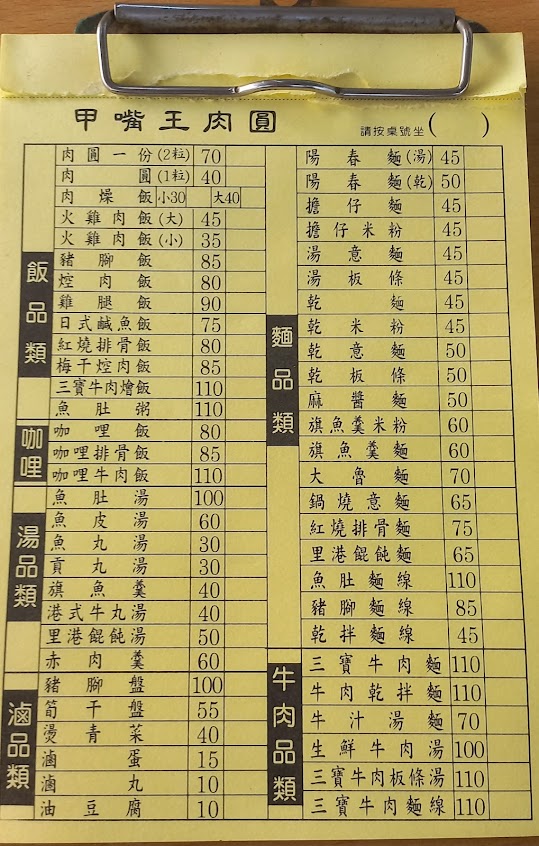 甲嘴王肉圓
請按桌號坐( )
飯品類
肉圓一份(2粒) 70
肉圓(1粒) 40
肉燥飯 小30 大40
火雞肉飯(大) 45
火雞肉飯(小) 35
豬腳飯 85
焢肉飯 80
雞腿飯 90
日式鹹魚飯 75
紅燒排骨飯 80
梅干焢肉飯 85
三寶牛肉燴飯 110
魚肚粥 110
咖哩
咖哩飯 80
咖哩排骨飯 85
咖哩牛肉飯 110
湯品類
魚肚湯 100
魚皮湯 60
魚丸湯 30
貢丸湯 30
旗魚羹 40
港式牛丸湯 40
里港餛飩湯 50
赤肉羹 60
滷品類
豬腳盤 100
筍干盤 55
燙青菜 40
滷蛋 15
滷丸 10
油豆腐 10
麵品類
陽春麵(湯) 45
陽春麵(乾) 50
擔仔麵 45
擔仔米粉 45
湯意麵 45
湯板條 45
乾麵 45
乾米粉 45
乾意麵 50
乾板條 50
麻醬麵 50
旗魚羹米粉 60
旗魚羹麵 60
大魯麵 70
鍋燒意麵 65
紅燒排骨麵 75
里港餛飩麵 65
魚肚麵線 110
豬腳麵線 85
乾拌麵線 45
牛肉品類
三寶牛肉麵 110
牛肉乾拌麵 110
牛汁湯麵 70
生鮮牛肉湯 100
三寶牛肉板條湯 110
三寶牛肉麵線 110